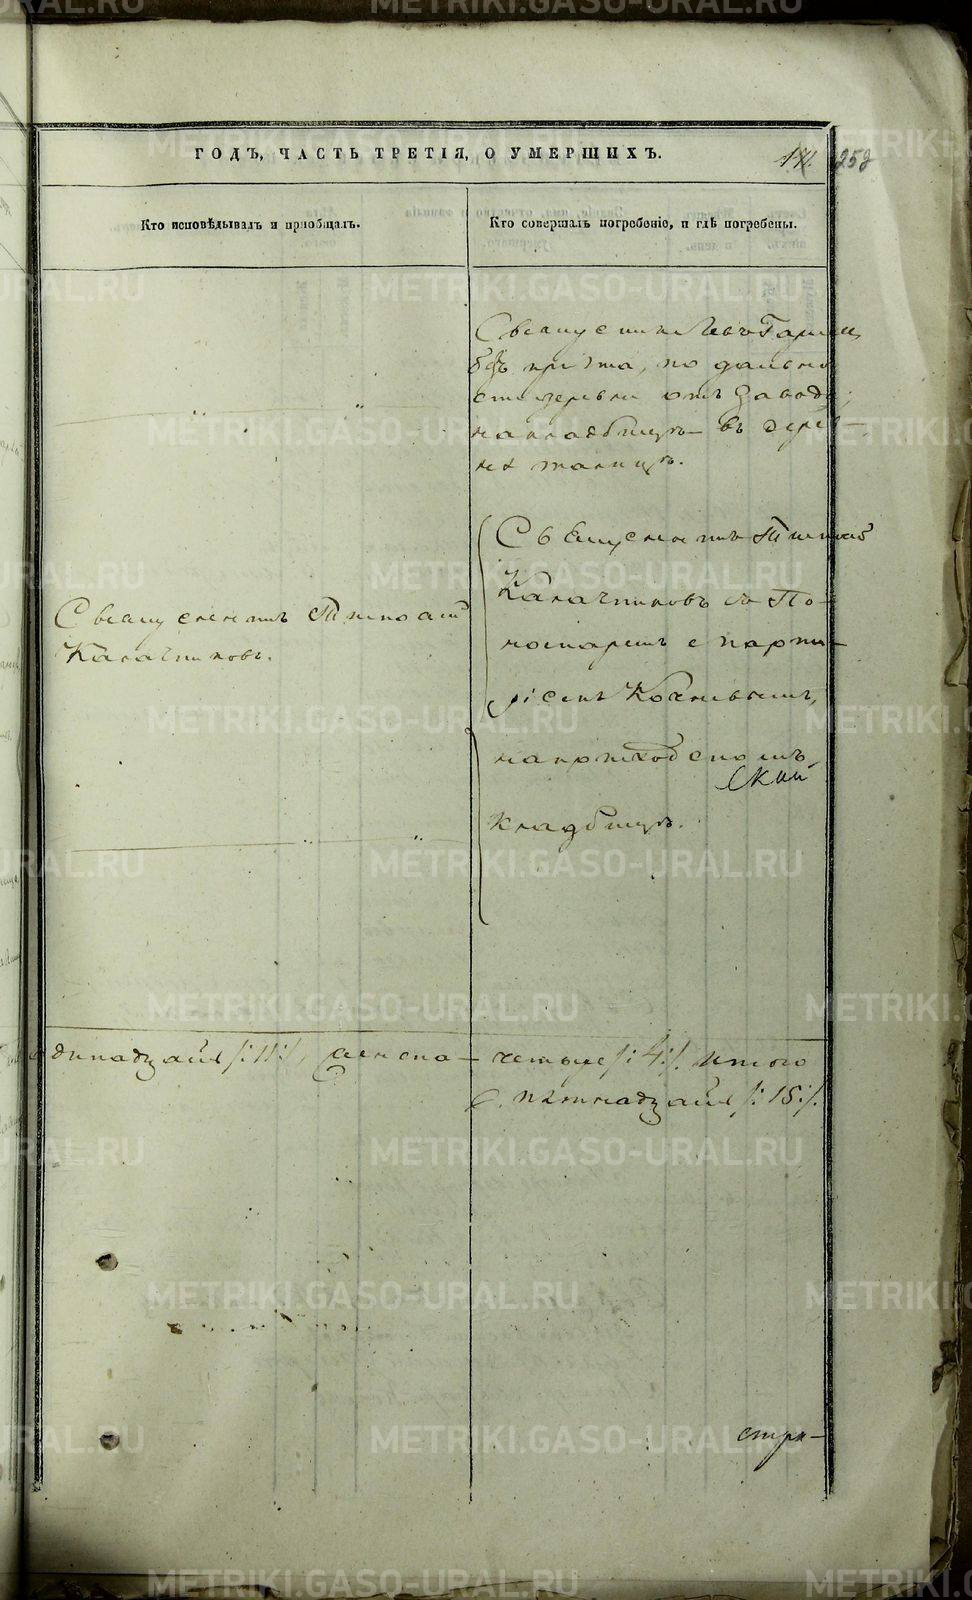 ГОДЪ, ЧАСТЬ ТРЕТІЯ, О УМЕРШИХЪ.
252
Кто исповѣдывалъ и пріобщалъ.
Кто совершалъ погребеніе, и гдѣ погребены.
Священникъ Левъ
безъ причта, по дально
сти деревни отъ Завода,
на кладбищѣ въ дерев-
нѣ
Священникъ Тимофей
Калачниковъ.
Священникъ Тимофей
Калачниковъ съ По-
номаремъ
Кочневымъ,
на приходскомъ
кладбищѣ.
динадцать /:11:/, женска-
четыре /:4:/. итого
пятнадцать /:15:/.
METRIKI.GASO-URAL.RU